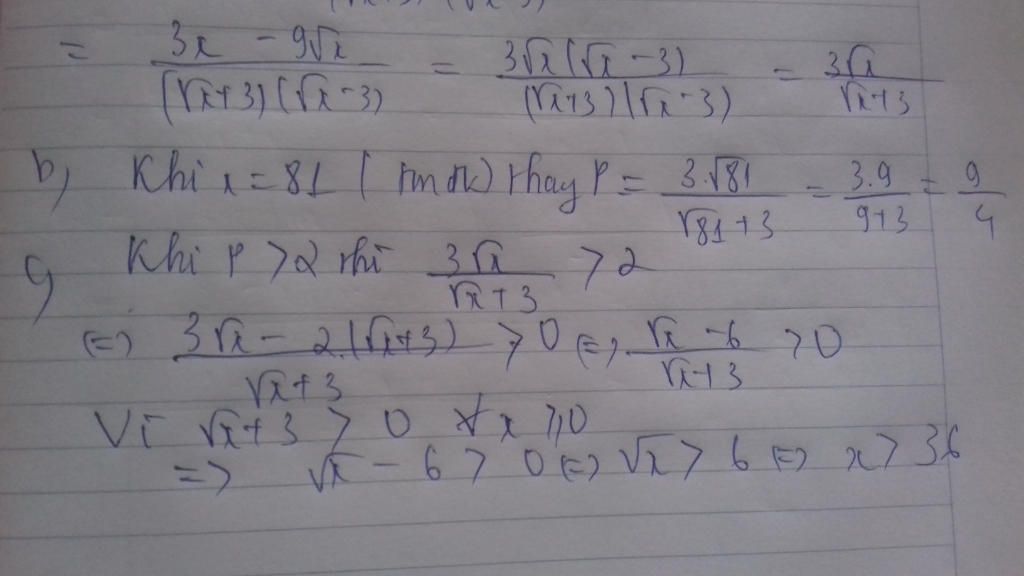 = (3x - 9√x)/((√x+3)(√x-3)) = (3√x(√x-3))/((√x+3)(√x-3)) = 3√x/(√x+3)
b) Khi x = 81 (tmđk) thay P = (3.√81)/(√81+3) = (3.9)/(9+3) = 9/4
c) Khi P > 2 thì 3√x/(√x+3) > 2
<=> (3√x - 2.(√x+3))/(√x+3) > 0 <=> (√x-6)/(√x+3) > 0
Vì √x+3 > 0 ∀x ≥ 0
=> √x - 6 > 0 <=> √x > 6 <=> x > 36